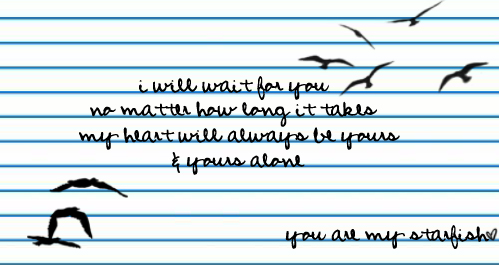 i will wait for you
no matter how long it takes
my heart will always be yours
& yours alone
you are my starfish♡